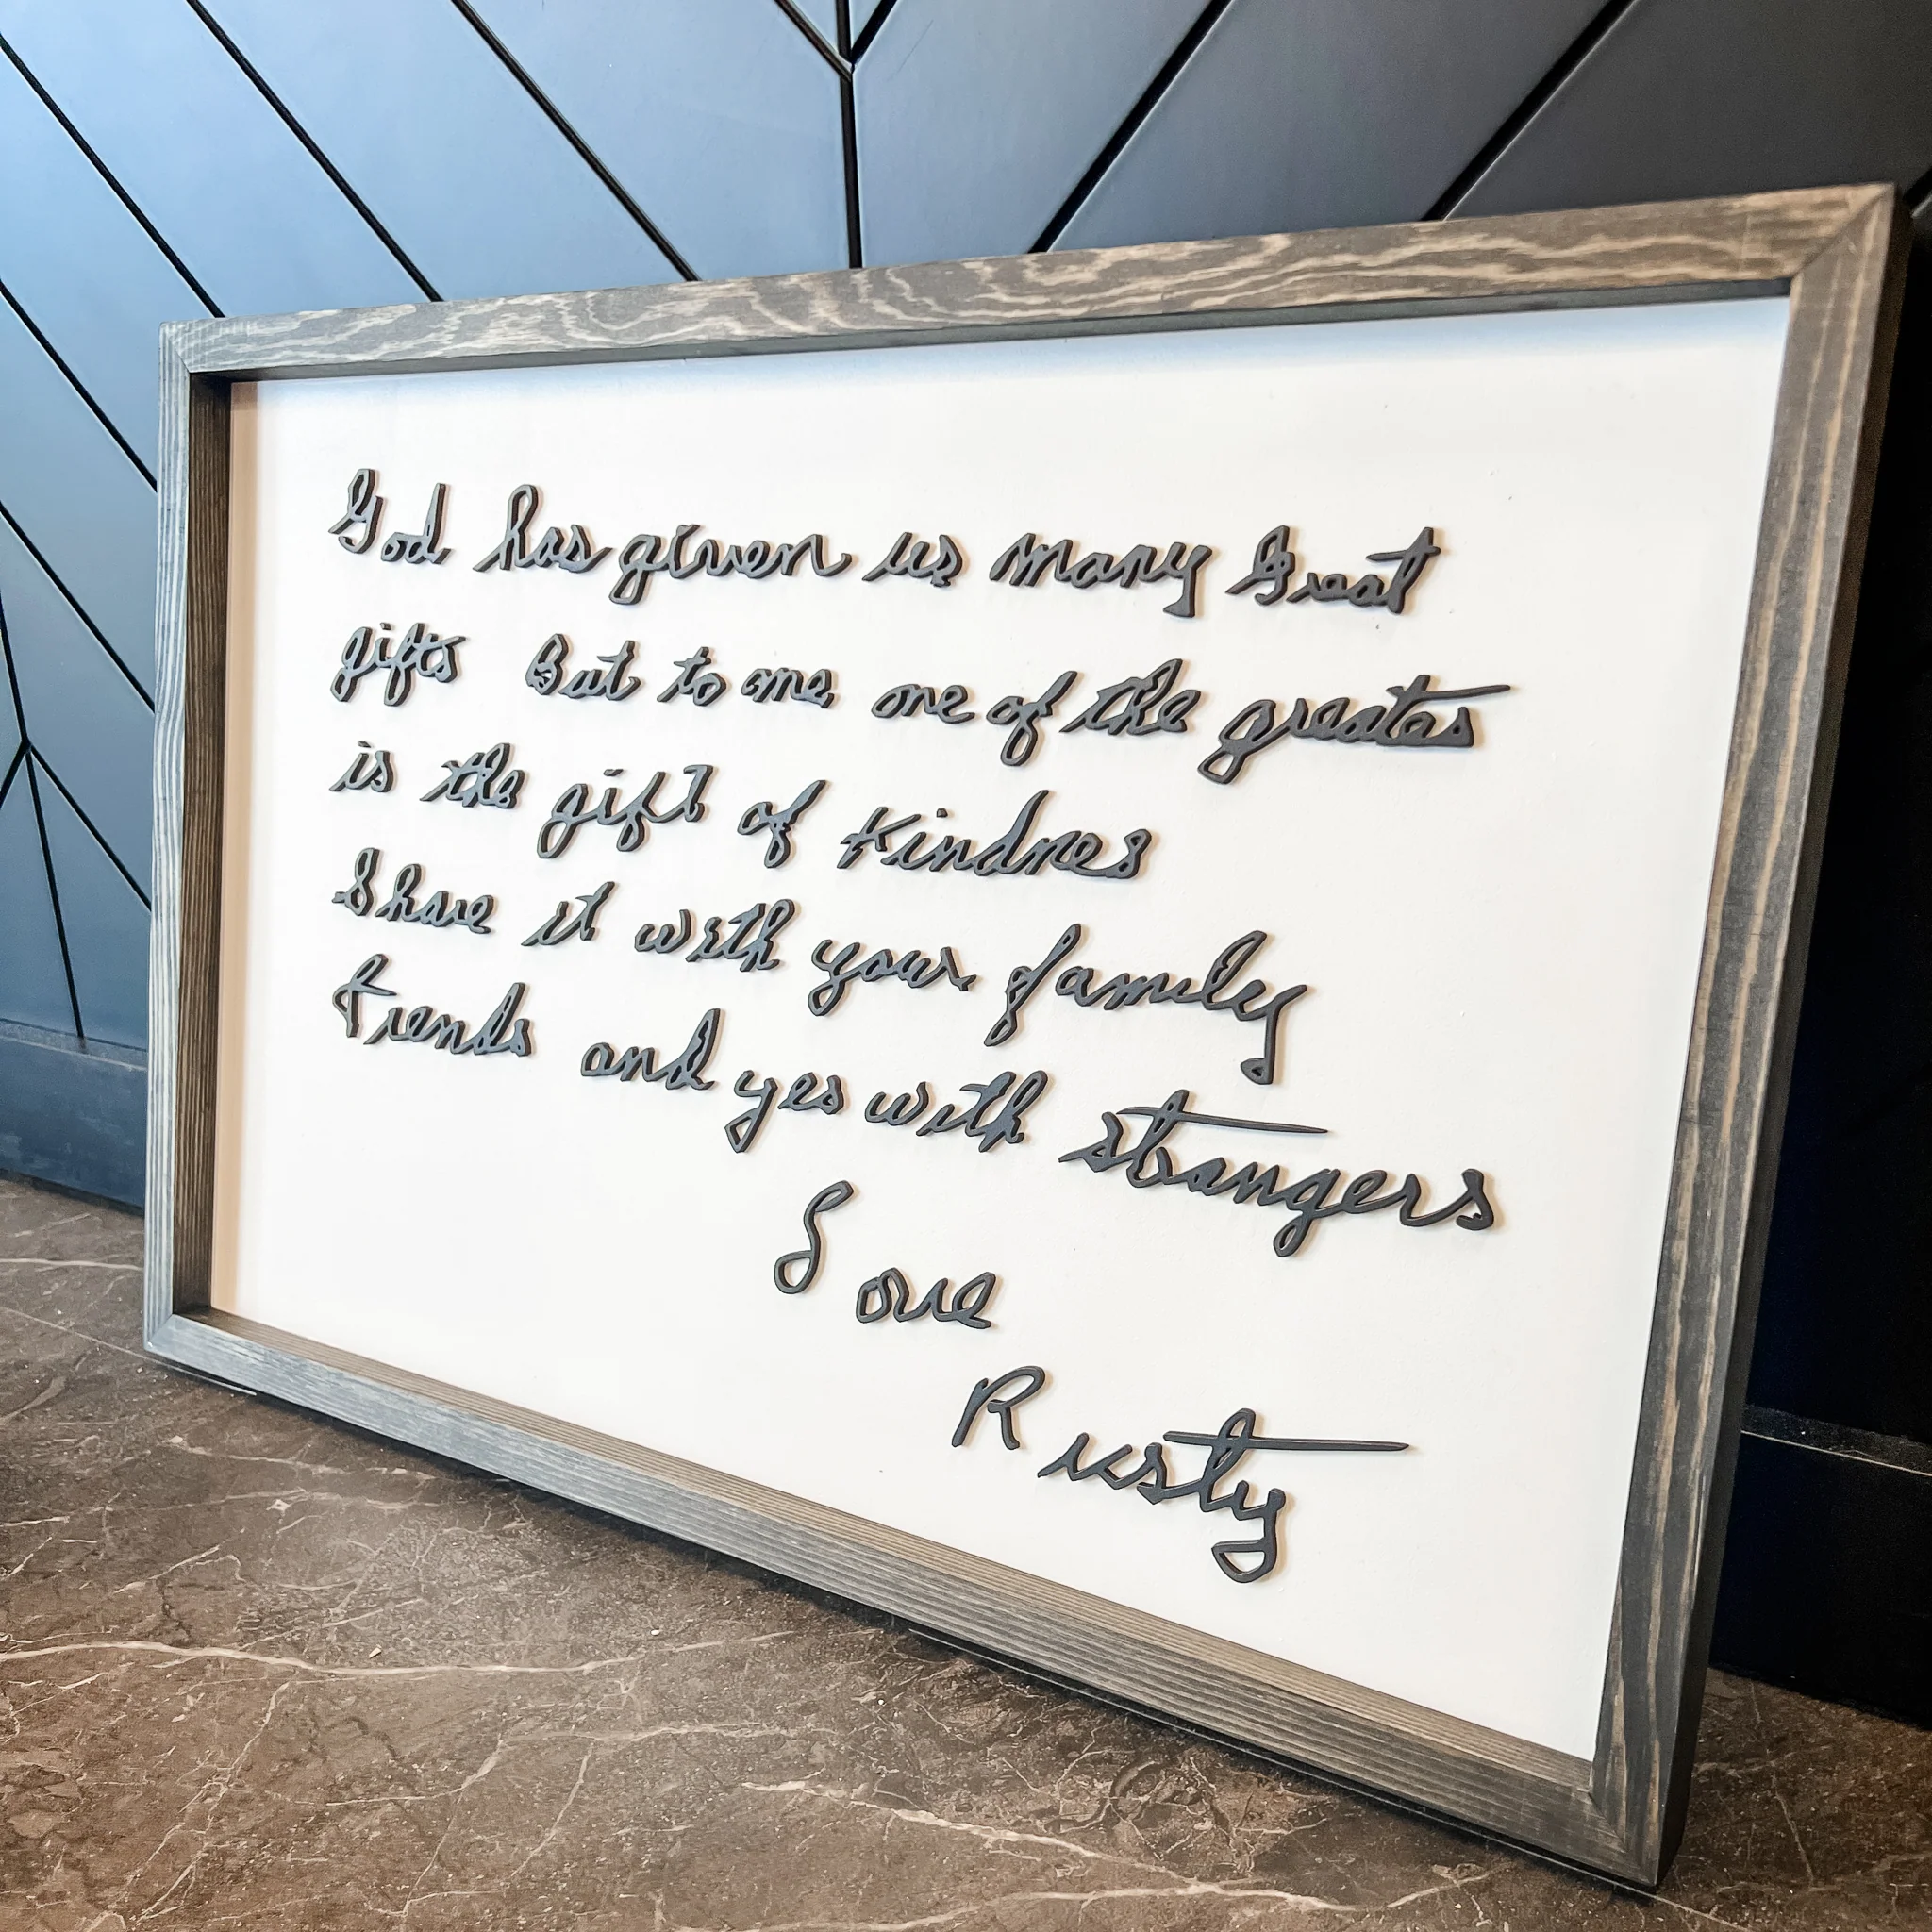 God has given us many Great
gifts But to me one of the greates
is the gift of Kindnes
Share it with your family
Friends and yes with strangers
Love
Rusty